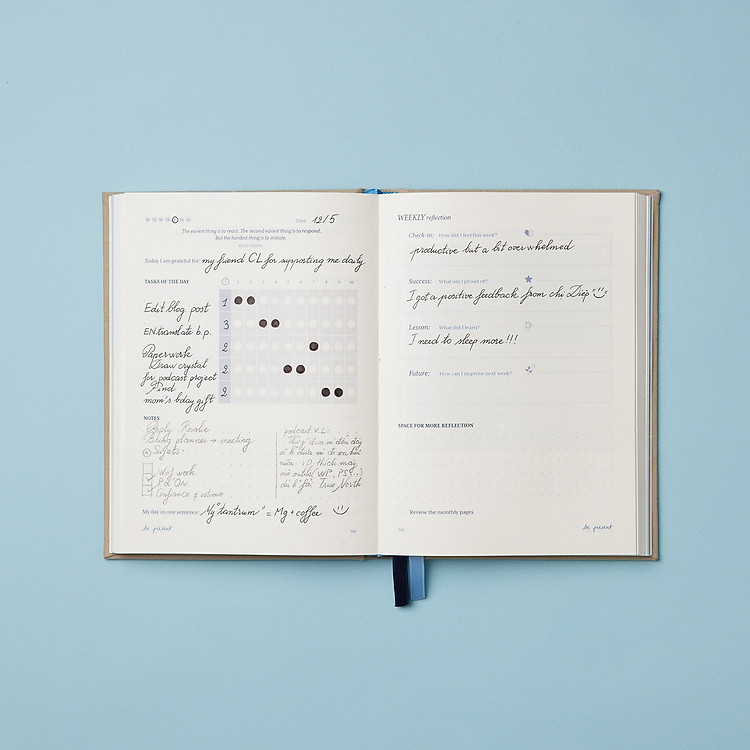 Date: 12/5
The easiest thing is to react. The second easiest thing is to respond.
But the hardest thing is to initiate.
Today I am grateful for: my friend CL for supporting me daily
TASKS OF THE DAY
1 2 3 4 5 6 7 8 9 10
Edit blog post
1
EN translate b.p.
3
Paperwork
2
Draw crystal
for podcast project
2
Find
mom's b-day gift
2
NOTES
Reply Rosalie
Bring planner → meeting
podcast V.L:
My day in one sentence: My "tantrum" = Mg + coffee
be present
WEEKLY reflection
Check-in: How did I feel this week?
productive but a bit overwhelmed
Success: What am I proud of?
I got a positive feedback from chi Diep
Lesson: What did I learn?
I need to sleep more!!!
Future: How can I improve next week?
SPACE FOR MORE REFLECTION
Review the monthly pages
be present